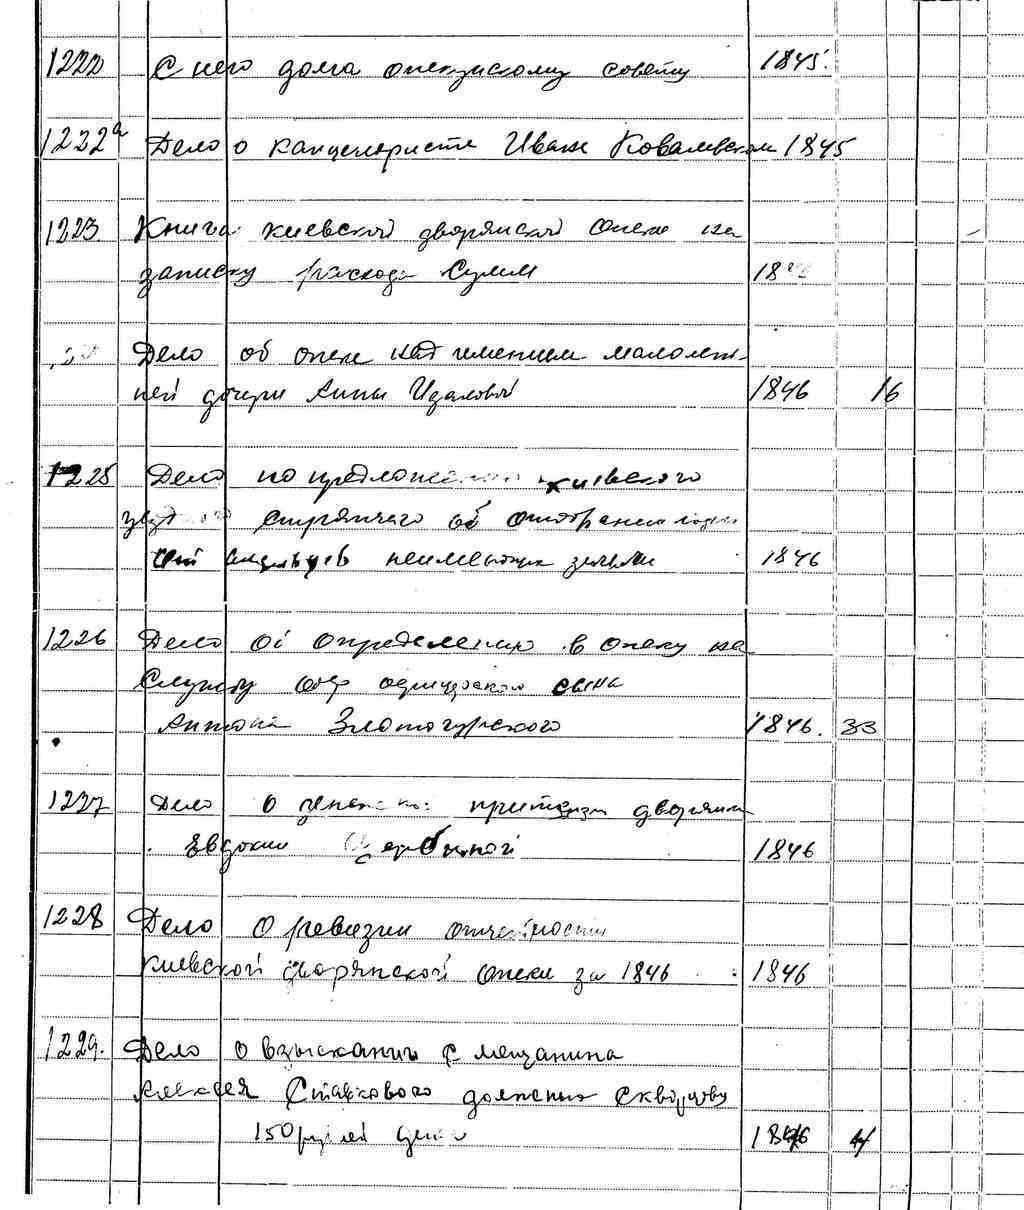 1222 С него долга опекунскому совету 1845.
1222а Дело о канцеляристе Иване Ковалевском 1845
1223. Книга киевской дворянской опеки на
записку расхода сумм 18
Дело об опеке над имением малолет-
ней дочери Анны 1846 16
1225 Дело по предложению киевского
стряпчего об отобрании
неимеющих земли 1846
1226 Дело об определению в опеку на
службу сына
Антона Златогурского 1846. 33
1227 Дело о претензии дворянки
Евдокии 1846
1228 Дело о ревизии отчетности
киевской дворянской опеки за 1846 1846
1229. Дело о взыскании с мещанина
Алексея Ставкового должных Скворцову
150 рублей 1846 4